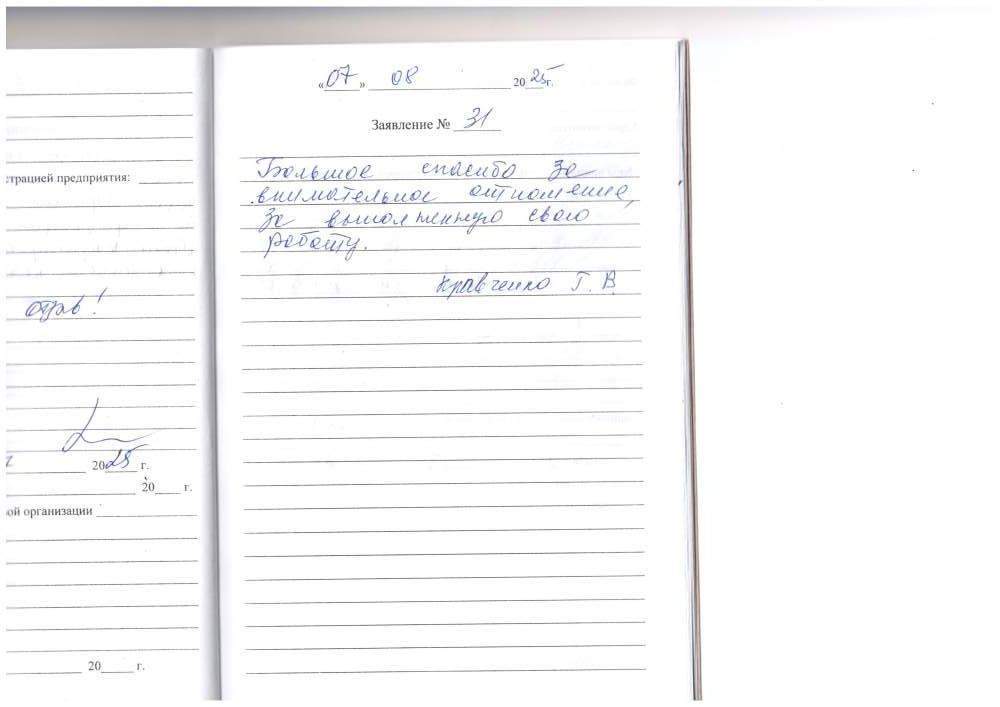 страцией предприятия:
отзыв!
2025 г.
20 г.
ой организации
20 г.
«07» 08 2025 г.
Заявление № 31
Большое спасибо за
внимательное отношение,
за выполненную свою
работу.
Кравченко Г. В.